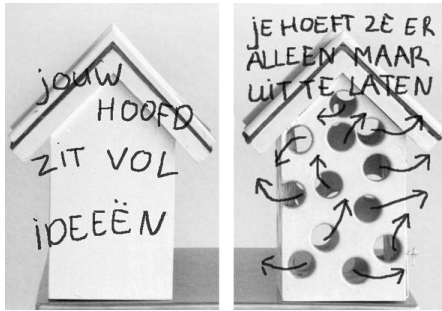 jOUW
HOOFD
ZIT VOL
iDEEËN
jE HOEFT ZE ER
ALLEEN MAAR
UIT TE LATEN